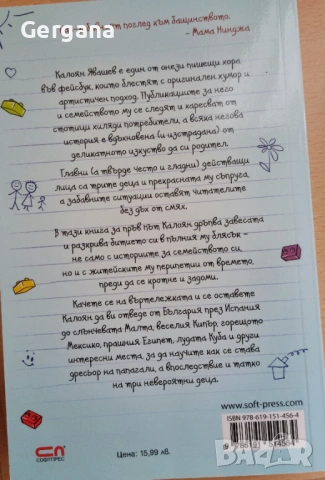 Gergana
поглед към бащинството.
– Мама Нинджа
Калоян Явашев е един от онези пишещи хора
във фейсбук, които блестят с оригинален хумор и
артистичен подход. Публикациите за него
и семейството му се следят и харесват от
стотици хиляди потребители, а всяка негова
история е вдъхновена (и изстрадана) от
деликатното изкуство да си родител.
Главни (а твърде често и гладни) действащи
лица са трите деца и прекрасната му съпруга,
а забавните ситуации оставят читателите
без дъх от смях.
В тази книга за пръв път Калоян дръпва завесата
и разкрива битието си в пълния му блясък –
не само с историите за семейството си,
но и с житейските му перипетии от времето,
преди да се кротне и задоми.
Качете се на въртележката и се оставете
Калоян да ви отведе от България през Испания
до слънчевата Малта, веселия Кипър, горещото
Мексико, прашния Египет, лудата Куба и други
интересни места, за да научите как се става
дресьор на папагали, а впоследствие и татко
на три невероятни деца.
www.soft-press.com
ISBN 978-619-151-456-4
9 786191 514564
СОФТПРЕС
Цена: 15,99 лв.
bazar